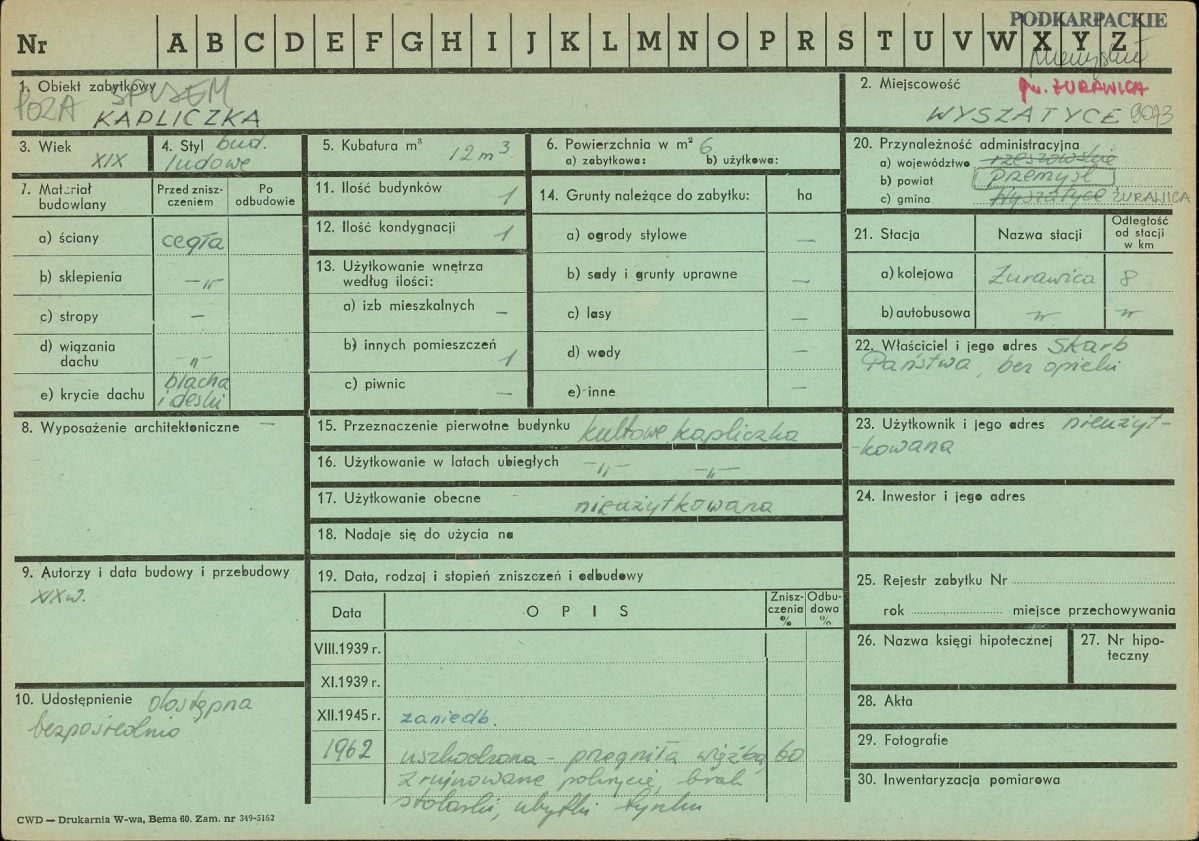 PODKARPACKIE
Nr A B C D E F G H I J K L M N O P R S T U V W X Y Z
1. Obiekt zabytkowy
POZA SPISEM
KAPLICZKA
2. Miejscowość
gw. ŻURAWICA
WYSZATYCE 9073
3. Wiek
XIX
4. Styl bud.
ludowe
5. Kubatura m³
12 m³
6. Powierzchnia w m² 6
a) zabytkowa: b) użytkowa:
7. Materiał budowlany
Przed zniszczeniem
Po odbudowie
a) ściany cegła
b) sklepienia -„-
c) stropy –
d) wiązania dachu -„-
e) krycie dachu blacha i deski
8. Wyposażenie architektoniczne –
9. Autorzy i data budowy i przebudowy
XIX w.
10. Udostępnienie dostępna
bezpośrednio
11. Ilość budynków 1
12. Ilość kondygnacji 1
13. Użytkowanie wnętrza
według ilości:
a) izb mieszkalnych –
b) innych pomieszczeń 1
c) piwnic –
14. Grunty należące do zabytku: ha
a) ogrody stylowe –
b) sady i grunty uprawne –
c) lasy –
d) wody –
e) inne –
15. Przeznaczenie pierwotne budynku kultowe kapliczka
16. Użytkowanie w latach ubiegłych -„- -„-
17. Użytkowanie obecne nieużytkowana
18. Nadaje się do użycia na
19. Data, rodzaj i stopień zniszczeń i odbudowy
Data OPIS Zniszczenia % Odbudowa %
VIII.1939 r.
XI.1939 r.
XII.1945 r. zaniedb.
1962 uszkodzona - przegniła więźba, 60
zrujnowane pokrycie, brak
stolarki, ubytki tynku
20. Przynależność administracyjna
a) województwo rzeszowskie
b) powiat Przemyśl
c) gmina Wyszatyce ŻURAWICA
21. Stacja Nazwa stacji Odległość od stacji w km
a) kolejowa Żurawica 8
b) autobusowa -„- -„-
22. Właściciel i jego adres Skarb
Państwa, bez opieki
23. Użytkownik i jego adres nieużyt-
-kowana
24. Inwestor i jego adres
25. Rejestr zabytku Nr
rok miejsce przechowywania
26. Nazwa księgi hipotecznej
27. Nr hipo-
teczny
28. Akta
29. Fotografie
30. Inwentaryzacja pomiarowa
CWD — Drukarnia W-wa, Bema 60. Zam. nr 349-5162